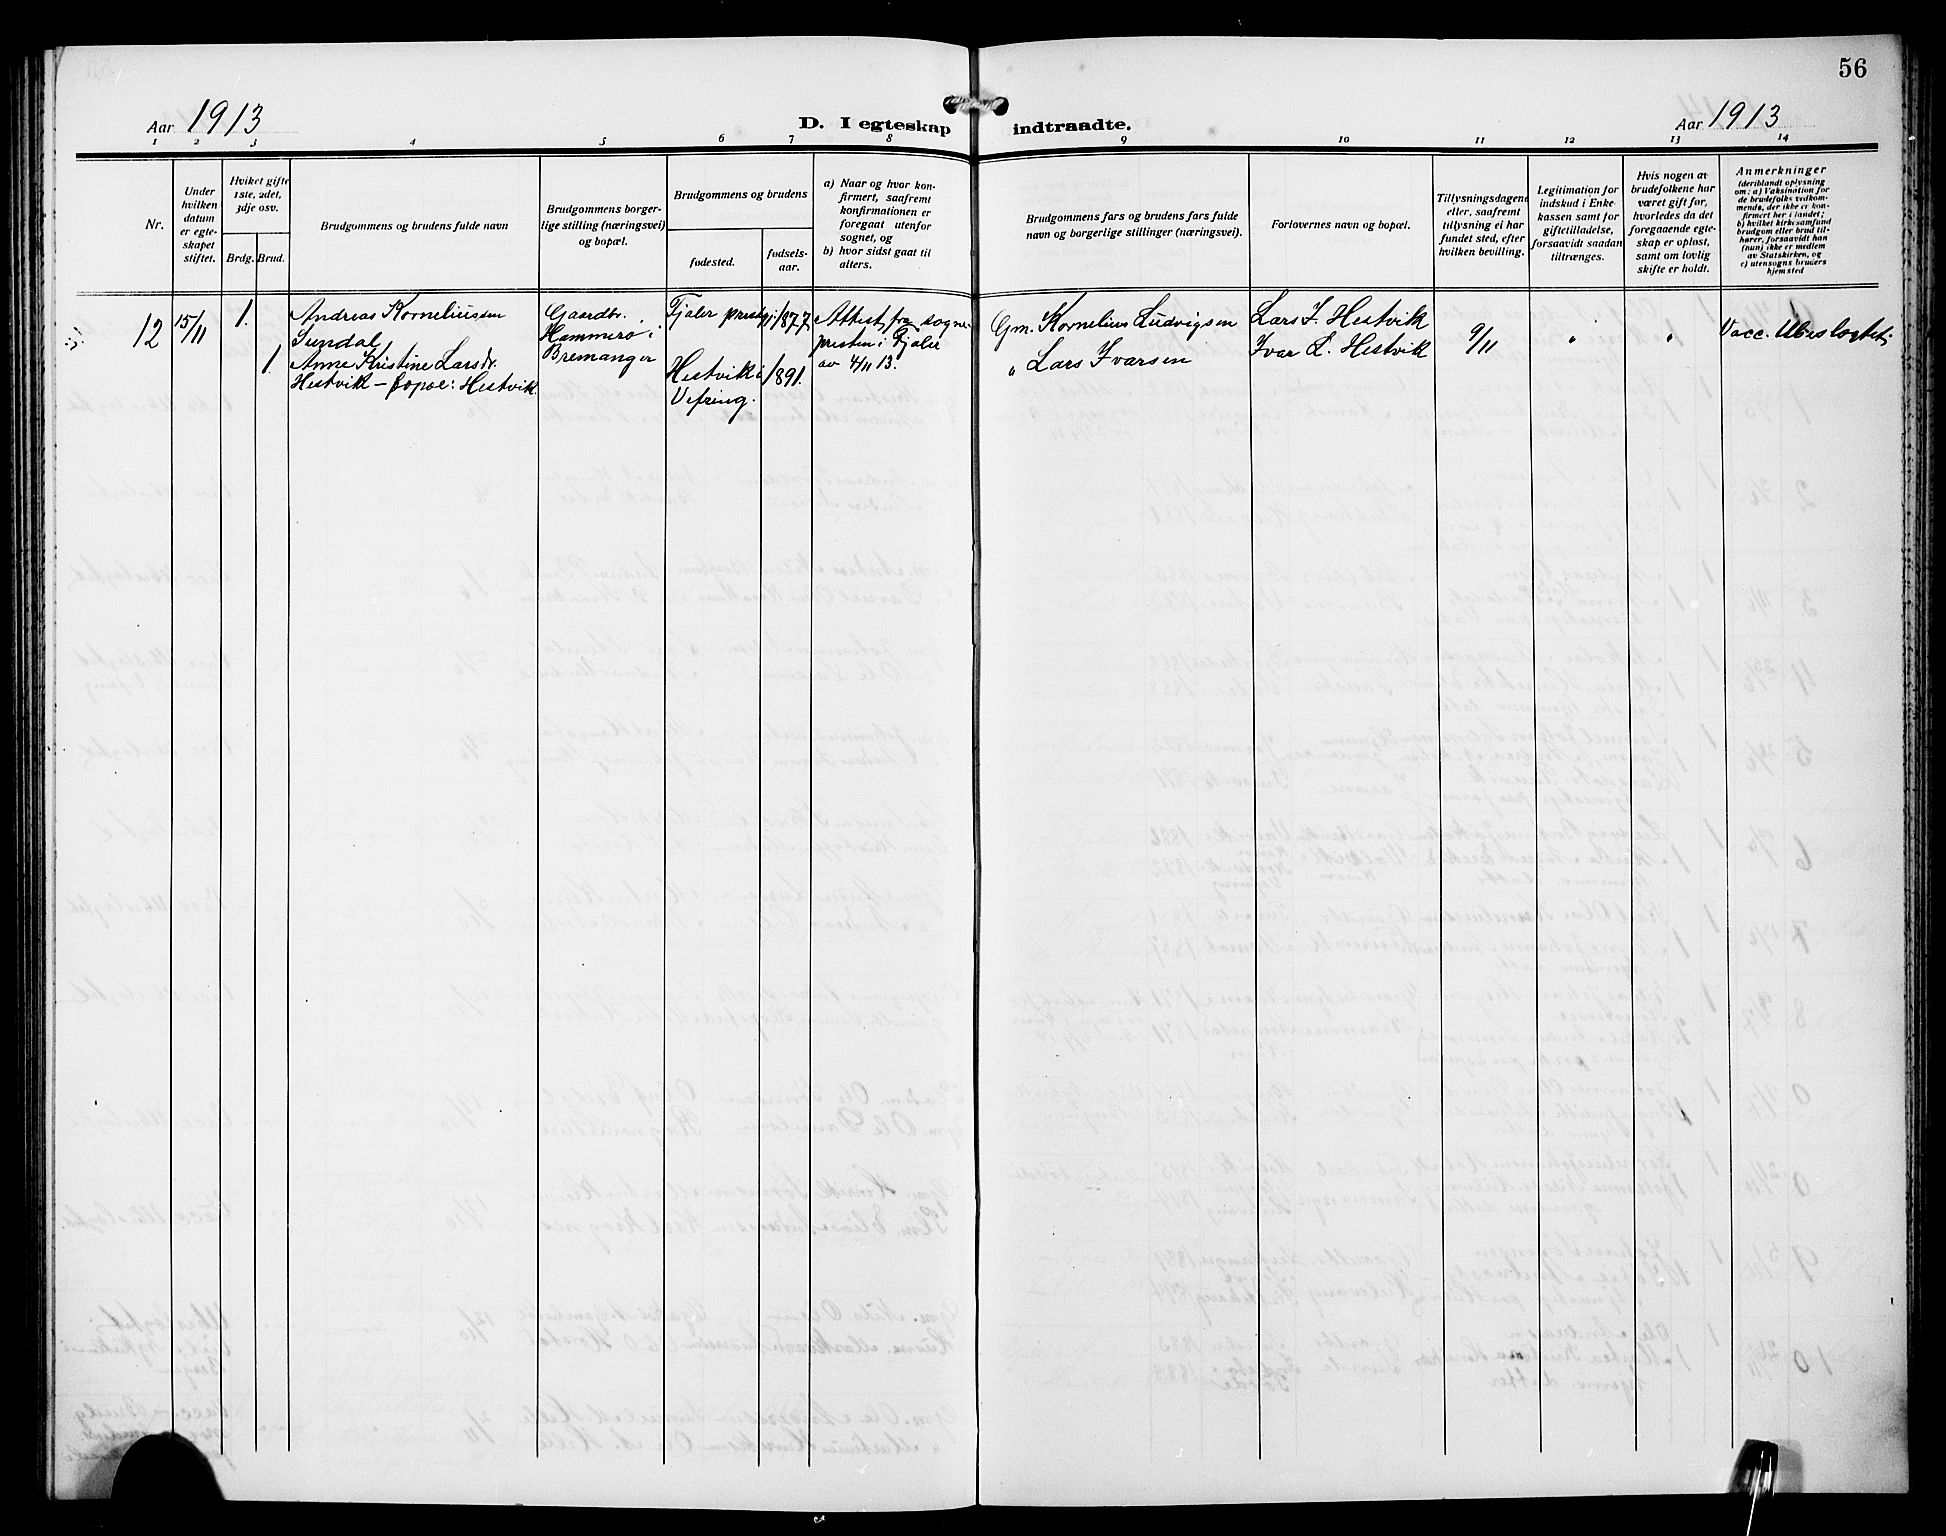 56
Aar 1913
D. I egteskap indtraadte.
Aar 1913
1 2 3 4 5 6 7 8 9 10 11 12 13 14
Nr.
Under
hvilken
datum
er egte-
skapet
stiftet.
Hviket gifte
1ste, 2det,
3dje osv.
Brdg. Brud.
Brudgommens og brudens fulde navn
Brudgommens borger-
lige stilling (næringsvei)
og bopæl.
Brudgommens og brudens
fødested.
fødsels-
aar.
a) Naar og hvor kon-
firmert, saafremt
konfirmationen er
foregaat utenfor
sognet, og
b) hvor sidst gaat til
alters.
Brudgommens fars og brudens fars fulde
navn og borgerlige stillinger (næringsvei).
Forlovernes navn og bopæl.
Tillysningsdagene
eller, saafremt
tillysning ei har
fundet sted, efter
hvilken bevilling.
Legitimation for
indskud i Enke-
kassen samt for
giftetilladelse,
forsaavidt saadan
tiltrænges.
Hvis nogen av
brudefolkene har
været gift før,
hvorledes da det
foregaaende egte-
skap er opløst,
samt om lovlig
skifte er holdt.
Anmerkninger
(deriblandt oplysning
om: a) Vaksination for
de brudefolks vedkom-
mende, der ikke er kon-
firmert her i landet;
b) hvilket kirkesamfund
brudgom eller brud til-
hører, forsaavidt han
(hun) ikke er medlem
av Statskirken, og
c) utensogns bruders
hjemsted
12
15/11
1.
1.
Andreas Korneliussen
Sundal
Anne Kristine Larsdr.
Hestvik – bopæl: Hestvik.
Gaardbr.
Hammerø i
Bremanger
Fjaler prestgj. 1877
Hestvik i 1891.
Vefring.
Attest fra sogne-
presten i Fjaler
av 4/11 13.
Gm. Kornelius Ludvigsen
" Lars Ivarsen
Lars I. Hestvik
Ivar L. Hestvik
9/11
"
"
Vacc. Ubeslegtet.